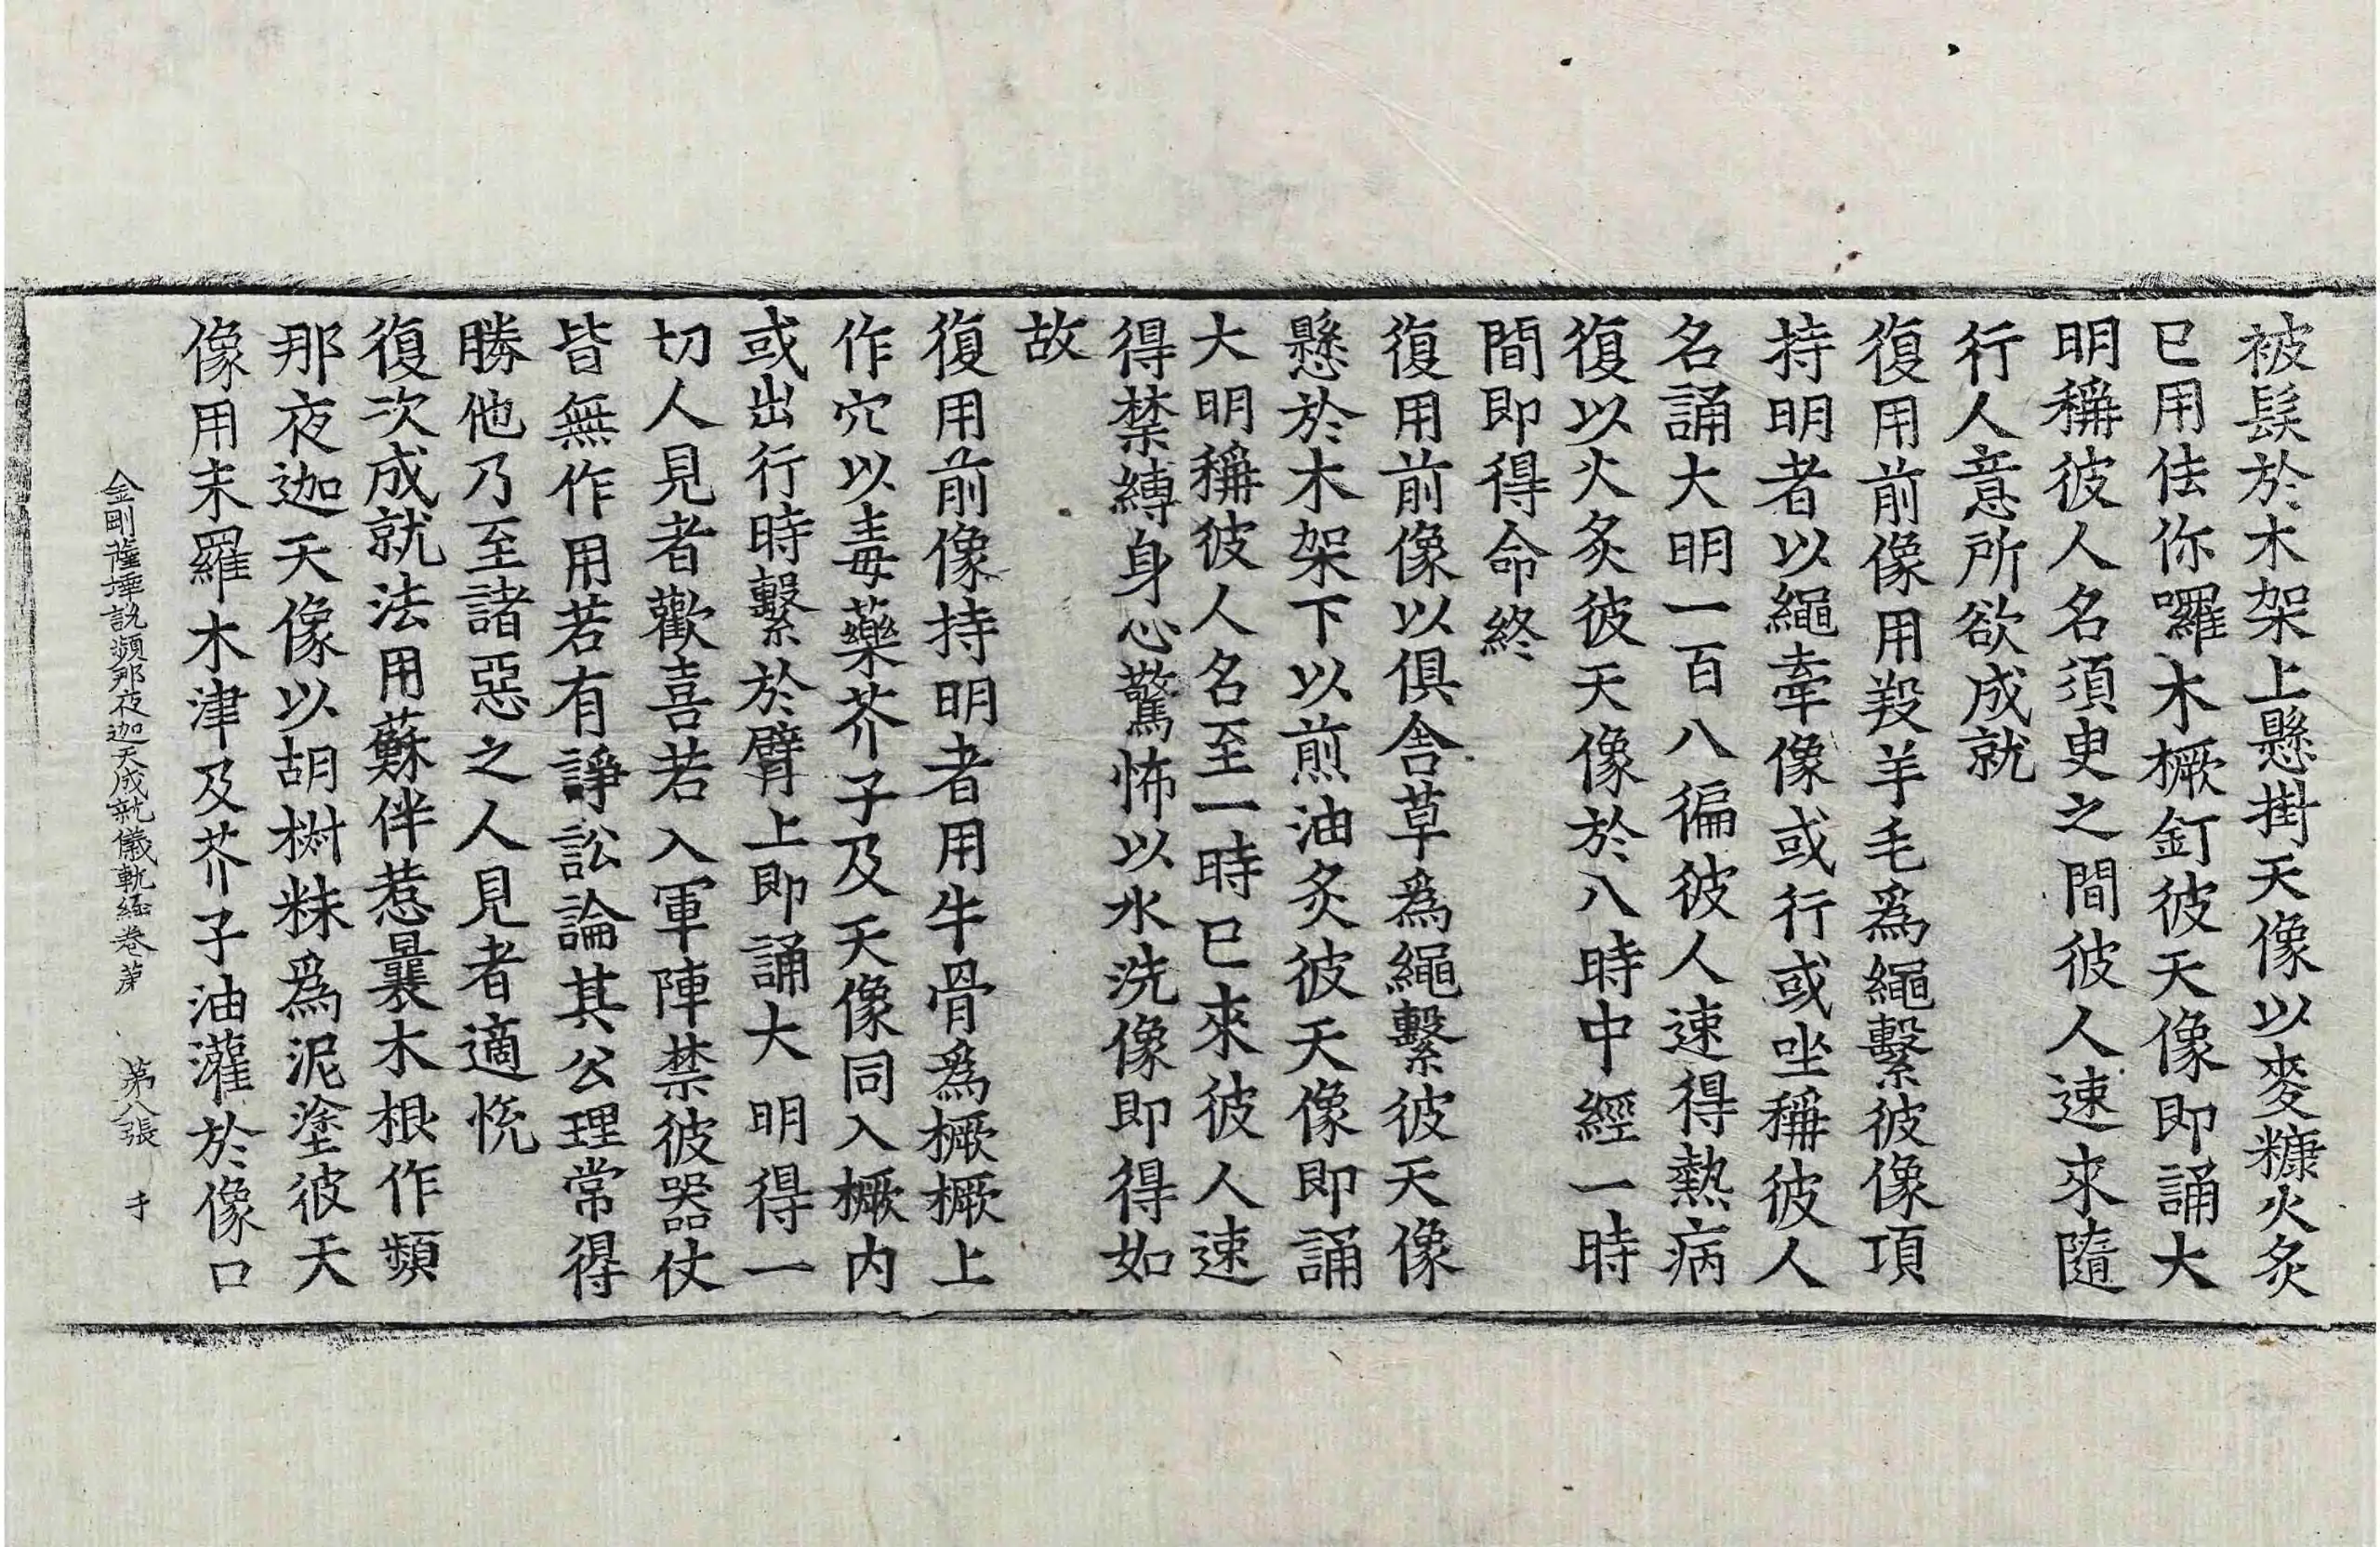 被髮於木架上懸掛天像以麥糠火炙
已用佉你囉木橛釘彼天像即誦大
明稱彼人名須臾之間彼人速來隨
行人意所欲成就
復用前像用羖羊毛爲繩繫彼像項
持明者以繩牽像或行或坐稱彼人
名誦大明一百八徧彼人速得熱病
復以火炙彼天像於八時中經一時
間即得命終
復用前像以俱舍草爲繩繫彼天像
懸於木架下以煎油炙彼天像即誦
大明稱彼人名至一時已來彼人速
得禁縛身心驚怖以水洗像即得如
故
復用前像持明者用牛骨爲橛橛上
作穴以毒藥芥子及天像同入橛内
或出行時繫於臂上即誦大明得一
切人見者歡喜若入軍陣禁彼器仗
皆無作用若有諍訟論其公理常得
勝他乃至諸惡之人見者適悅
復次成就法用蘇伴惹曩木根作頻
那夜迦天像以胡椒粖爲泥塗彼天
像用末羅木津及芥子油灌於像口
金剛薩埵說頻那夜迦天成就儀軌經卷第 第八張